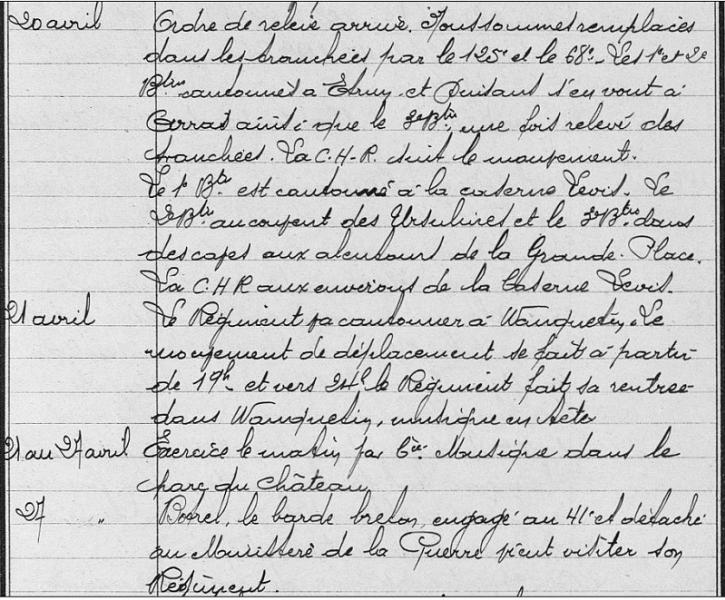 20 avril Ordre de relève arrivé. Nous sommes remplacés
dans les tranchées par le 125e et le 68e. Les 1e et 2e
Btns cantonnés à Etrun et Duisans s'en vont à
Arras ainsi que le 3eBtn, une fois relevé des
tranchées. La C.H-R. suit le mouvement.
Le 1e Btn est cantonné à la caserne Levis. Le
2eBtn au couvent des Ursulines et le 3eBtn dans
des caves aux alentours de la Grande-Place.
La C.H R aux environs de la Caserne Levis.
21 avril Le Régiment va cantonner à Wanquetin. Le
mouvement de déplacement se fait à partir
de 19h et vers 24h le Régiment fait sa rentrée
dans Wanquetin, musique en tête
21 au 27 avril Exercice le matin par Cie. Musique dans le
parc du Château
27 " Botrel, le barde breton, engagé au 41e et détaché
au Ministère de la Guerre vient visiter son
Régiment.